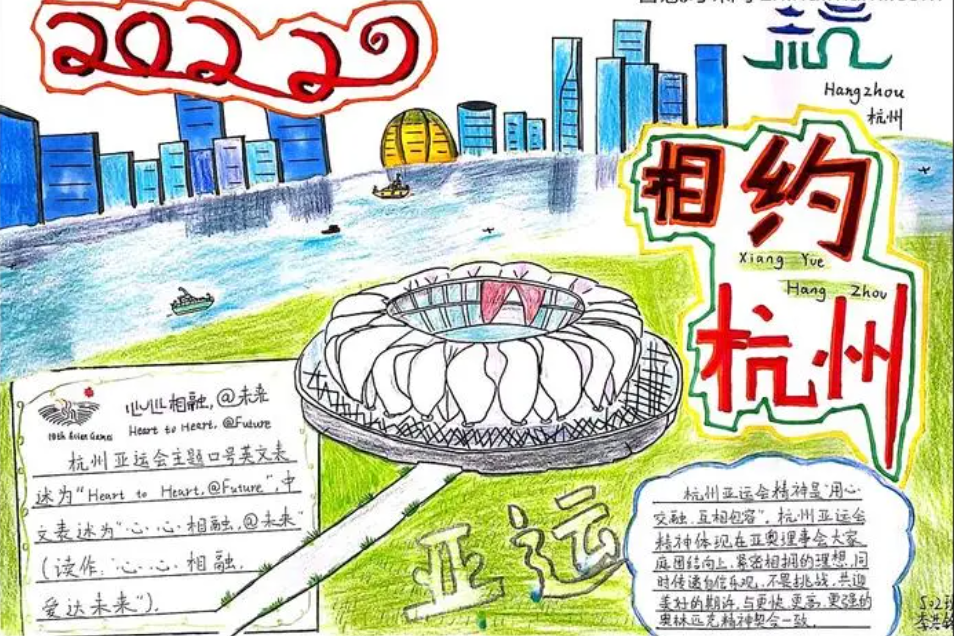 2022
Hangzhou
杭州
相约
Xiang Yue
Hang Zhou
杭州
19th Asian Games
心心相融,@未来
Heart to Heart, @Future
杭州亚运会主题口号英文表
述为“Heart to Heart,@Future”,中
文表述为“心心相融,@未来”
(读作:心心相融,
爱达未来”).
亚运
杭州亚运会精神是“用心
交融,互相包容”。杭州亚运会
精神体现在亚奥理事会大家
庭团结向上、紧密相拥的理想,同
时传递自信乐观、不畏挑战、共迎
美好的期许,与更快、更高、更强的
奥林匹克精神契合一致。
502班